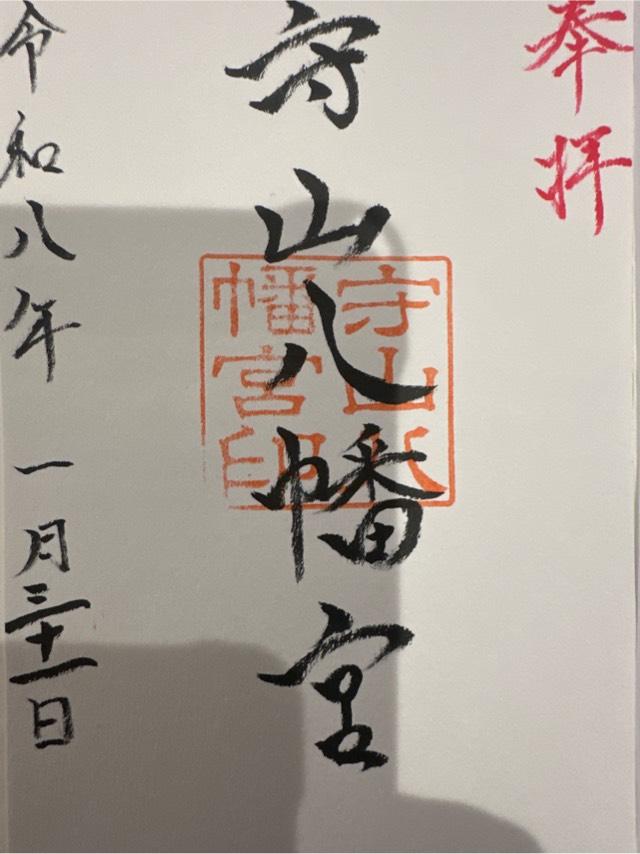 奉拝
守山八幡宮
守山八
幡宮印
令和八年 一月三十一日